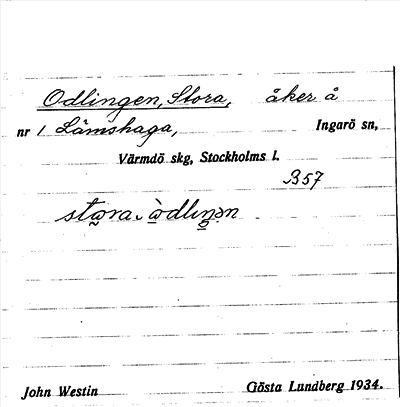 Odlingen, Stora, åker å
nr 1 Lämshaga, Ingarö sn,
Värmdö skg, Stockholms l.
B57
stora, òdliŋən
John Westin Gösta Lundberg 1934.